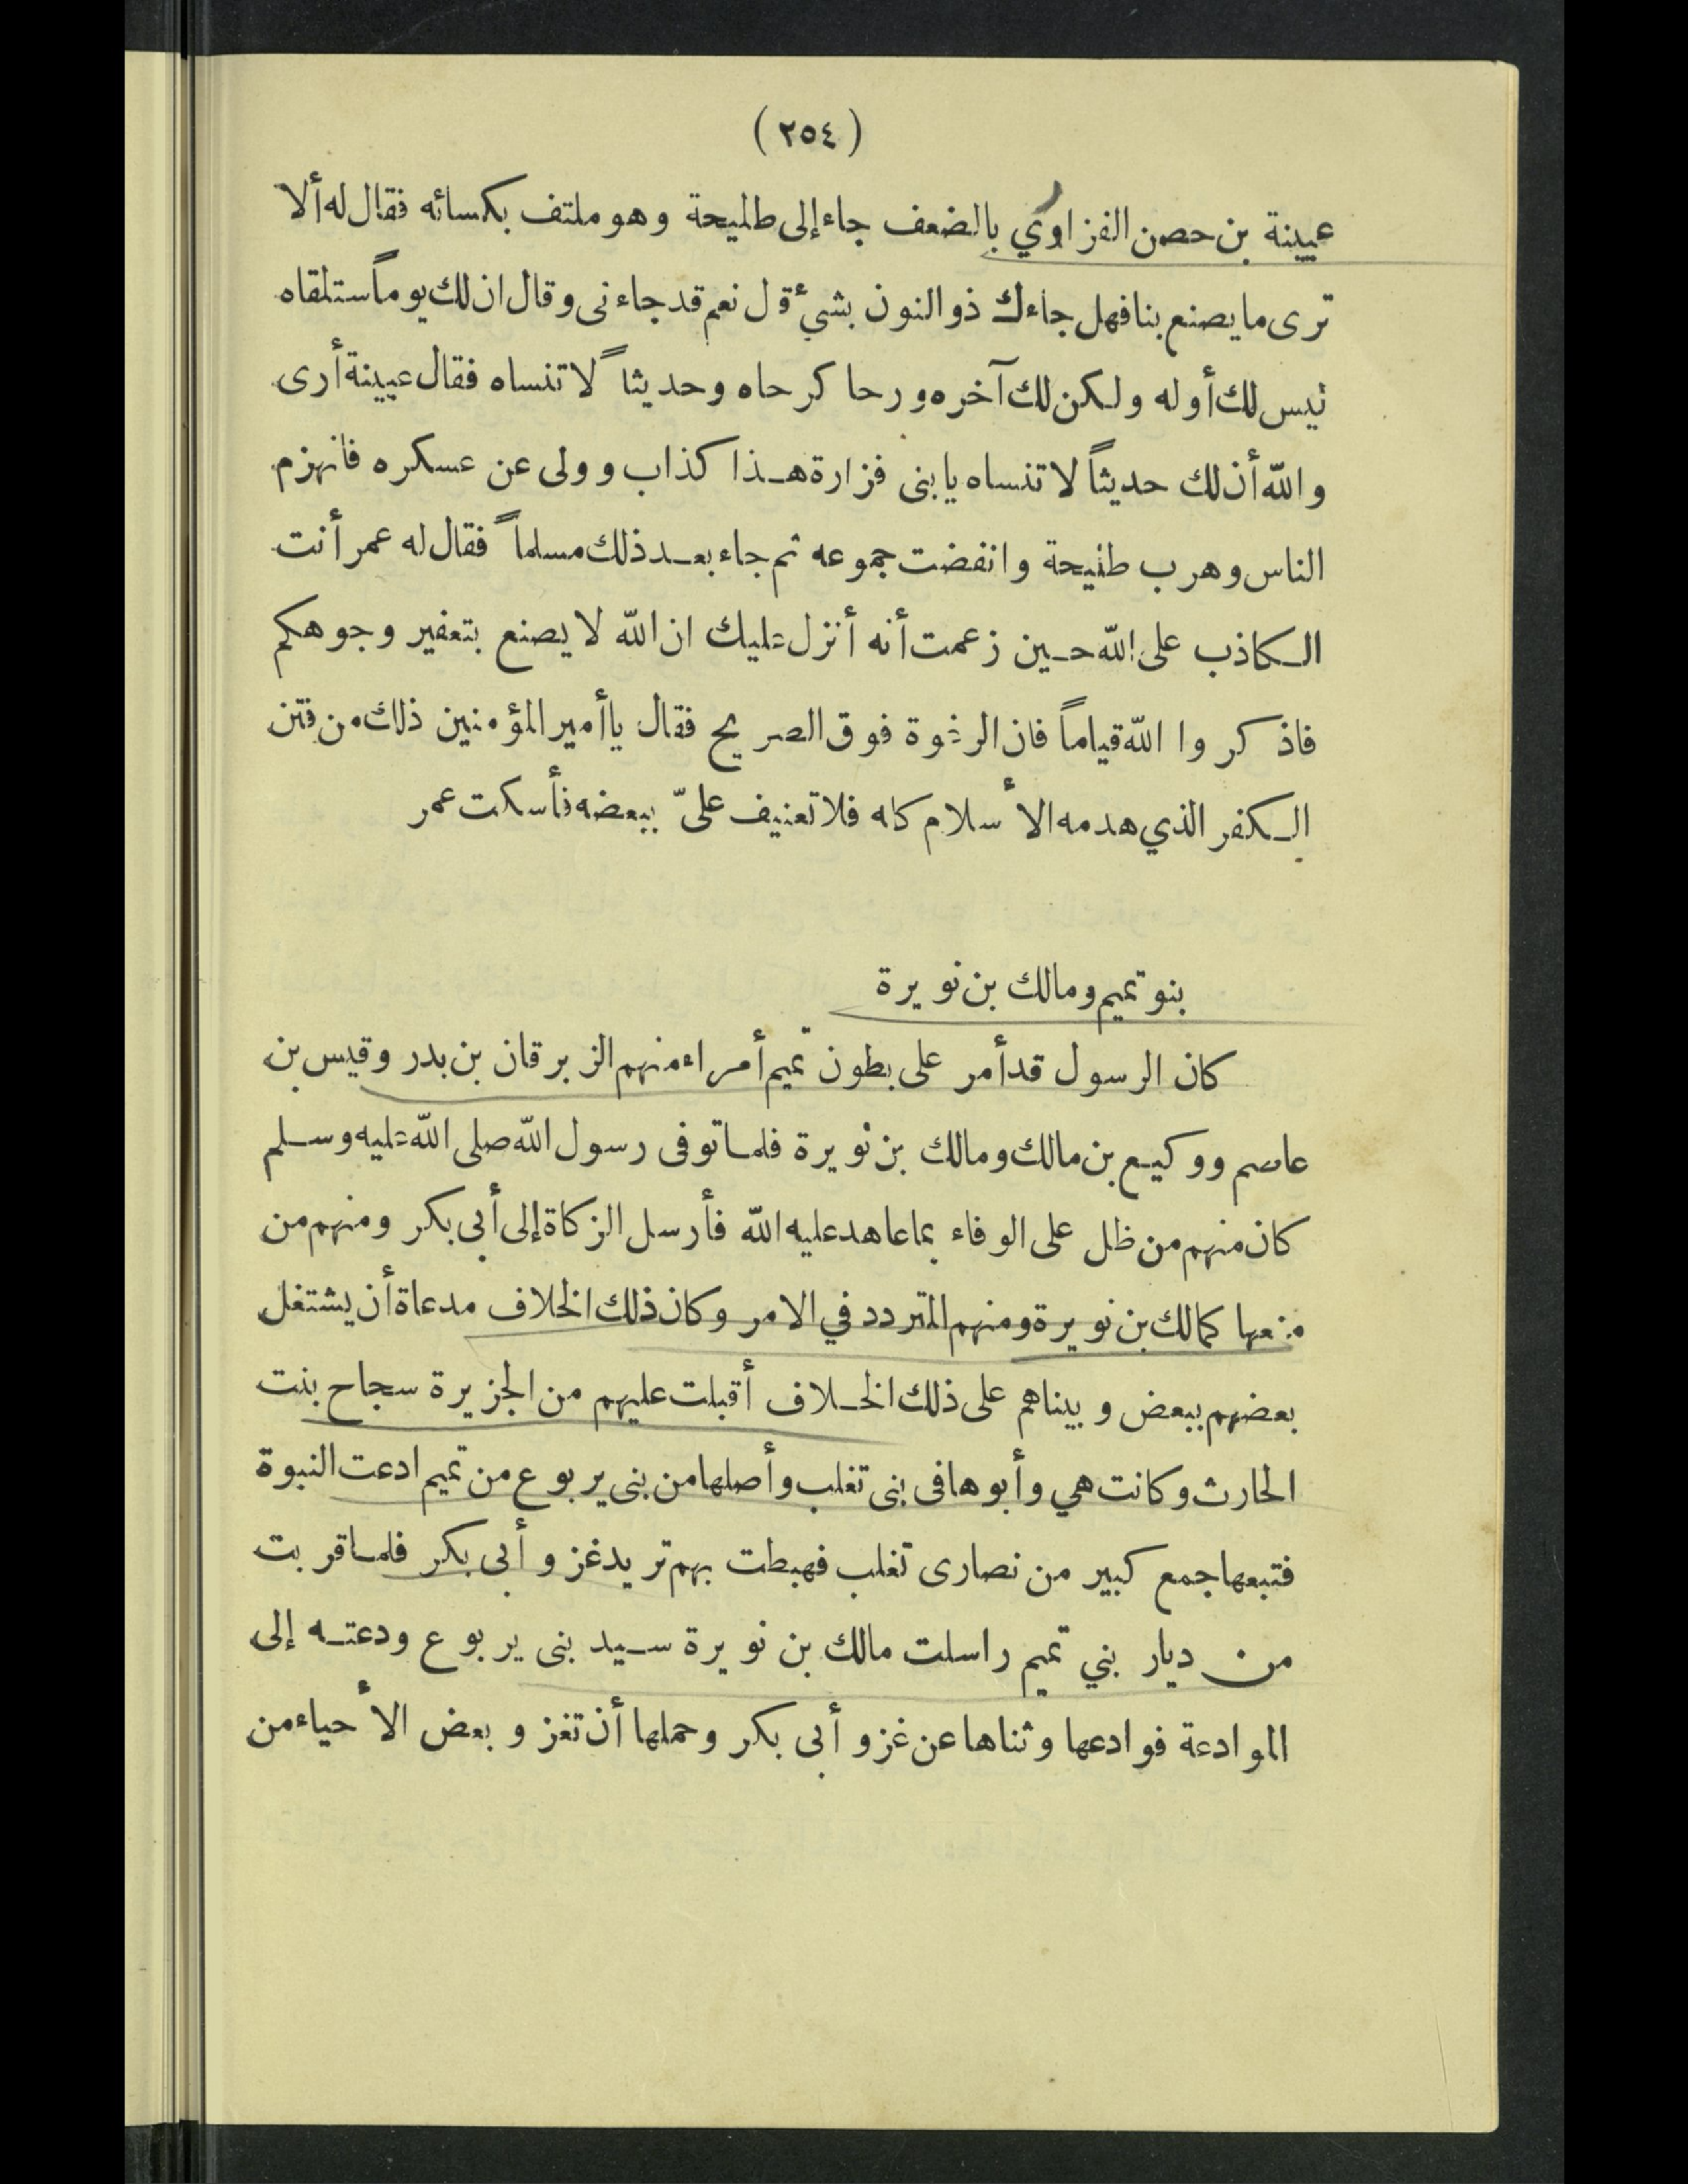 (٢٥٤)
عيينة بن حصن الفزاوي بالضعف جاء إلى طليحة وهو ملتف بكسائه فقال له ألا
ترى ما يصنع بنا فهل جاءك ذو النون بشيء قل نعم قد جاءنى وقال ان لك يوماً ستلقاه
ليس لك أوله ولكن لك آخره ورحا كرحاه وحديثاً لا تنساه فقال عيينة أرى
والله أن لك حديثاً لا تنساه يا بنى فزارة هذا كذاب وولى عن عسكره فانهزم
الناس وهرب طليحة وانفضت جموعه ثم جاء بعد ذلك مسلماً فقال له عمر أنت
الكاذب على الله حين زعمت أنه أنزل عليك ان الله لا يصنع بتعفير وجوهكم
فاذكروا الله قياماً فان الرغوة فوق الصريح فقال يا أمير المؤمنين ذلك من فتن
الكفر الذي هدمه الأسلام كله فلا تعنيف علىّ ببعضه فأسكت عمر
بنو تميم ومالك بن نويرة
كان الرسول قد أمر على بطون تميم أمراء منهم الزبرقان بن بدر وقيس بن
عاصم ووكيع بن مالك ومالك بن نويرة فلما توفى رسول الله صلى الله عليه وسلم
كان منهم من ظل على الوفاء بما عاهد عليه الله فأرسل الزكاة إلى أبى بكر ومنهم من
منعها كمالك بن نويرة ومنهم المتردد في الامر وكان ذلك الخلاف مدعاة أن يشتغل
بعضهم ببعض وبيناهم على ذلك الخلاف أقبلت عليهم من الجزيرة سجاح بنت
الحارث وكانت هي وأبوها فى بنى تغلب وأصلها من بنى يربوع من تميم ادعت النبوة
فتبعها جمع كبير من نصارى تغلب فهبطت بهم تريد غزو أبى بكر فلما قربت
من ديار بني تميم راسلت مالك بن نويرة سيد بنى يربوع ودعته إلى
الموادعة فوادعها وثناها عن غزو أبى بكر وحملها أن تغزو بعض الأحياء من